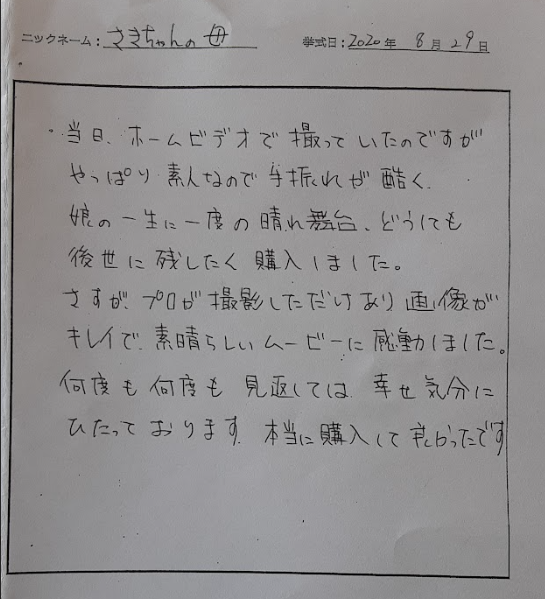 ニックネーム：さきちゃんの母 挙式日：2020年 8月29日
当日、ホームビデオで撮っていたのですが
やっぱり素人なので手振れが酷く、
娘の一生に一度の晴れ舞台、どうしても
後世に残したく購入しました。
さすが、プロが撮影しただけあり画像が
キレイで、素晴らしいムービーに感動しました。
何度も何度も見返しては、幸せ気分に
ひたっております。本当に購入して良かったです